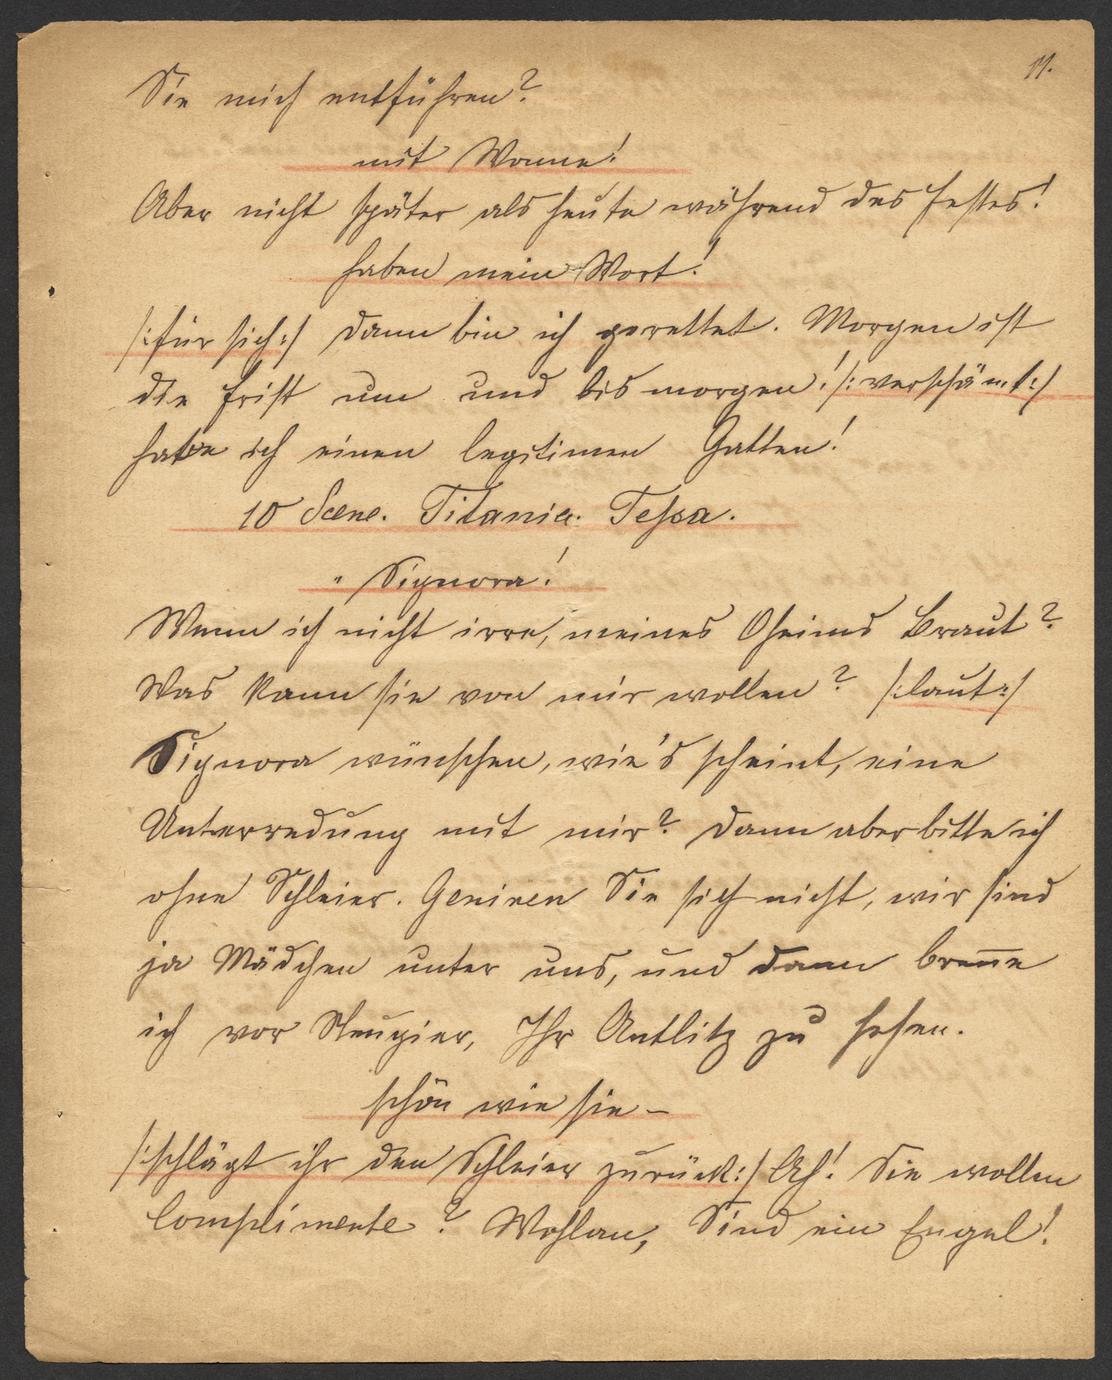 11.
Sie mich entführen?
mit Wonne!
Aber nicht später als heute während des Festes!
haben mein Wort!
/:für sich:/ dann bin ich gerettet. Morgen ist
die Frist um und bis morgen!/:verschämt:/
habe ich einen legitimen Gatten!
10 Scene. Titania. Tessa.
" Signora!
Wenn ich nicht irre, meines Oheims Braut?
Was kann sie von mir wollen? /:laut:/
Signora wünschen, wie's scheint, eine
Unterredung mit mir? Dann aber bitte ich
ohne Schleier. Geniren Sie sich nicht, wir sind
ja Mädchen unter uns, und dann breñe
ich vor Neugier, Ihr Antlitz zu sehen.
schön wie sie –
/:schlägt ihr den Schleier zurück:/ Ah! Sie wollen
Complimente? Wohlan, Sind ein Engel!